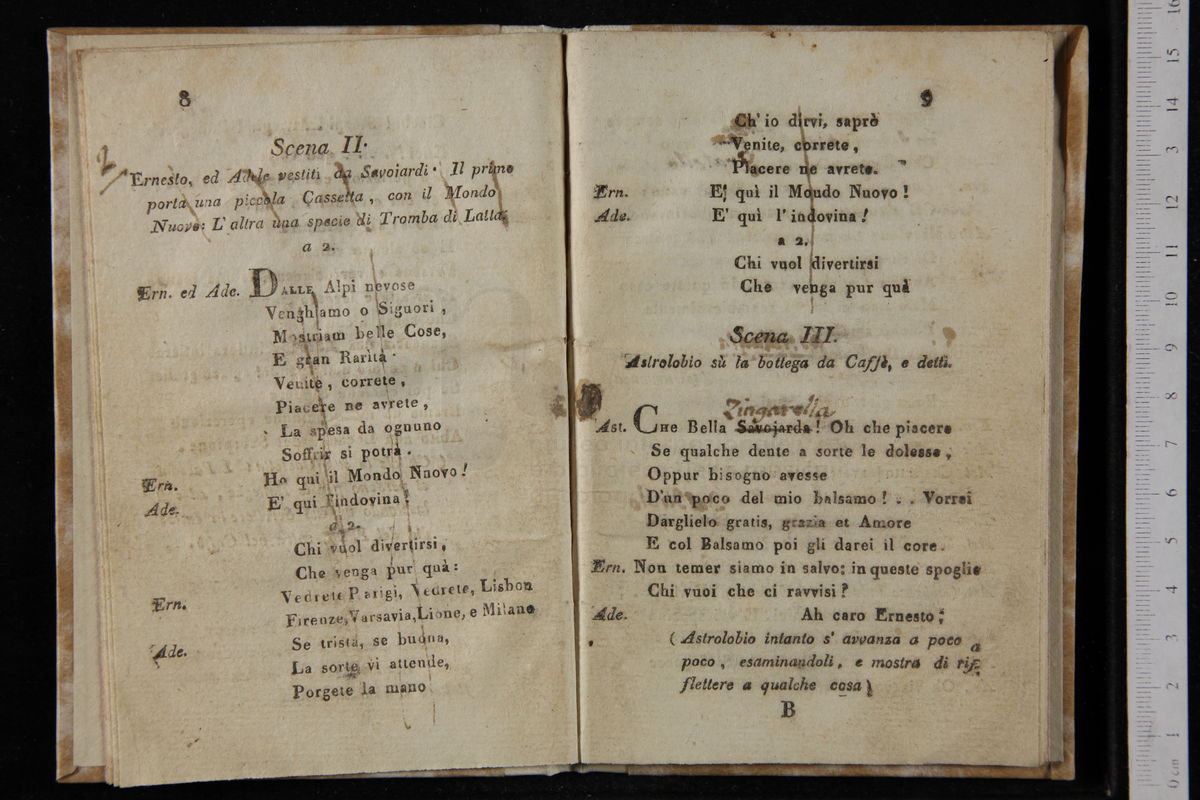 8
Scena II.
2
Ernesto, ed Adele vestiti da Savoiardi. Il primo
porta una piccola Cassetta, con il Mondo
Nuovo: L'altra una specie di Tromba di Latta.
a 2.
Ern. ed Ade. DALLE Alpi nevose
Venghiamo o Siguori,
Mostriam belle Cose,
E gran Rarità.
Venite, correte,
Piacere ne avrete,
La spesa da ognuno
Soffrir si potrà.
Ern. Ho qui il Mondo Nnovo!
Ade. E' qui l'indovina!
a 2.
Chi vuol divertirsi,
Che venga pur quà:
Ern. Vedrete Parigi, Vedrete, Lisbon
Firenze, Varsavia, Lione, e Milano
Ade. Se trista, se buona,
La sorte vi attende,
Porgete la mano
9
Ch' io dirvi, saprò
Venite, correte,
Piacere ne avrete.
Ern. E' quì il Mondo Nuovo!
Ade. E' quì l'indovina!
a 2.
Chi vuol divertirsi
Che venga pur quà
Scena III.
Astrolobio sù la bottega da Caffè, e detti.
Zingarella
Ast. CHE Bella Savojarda! Oh che piacere
Se qualche dente a sorte le dolesse,
Oppur bisogno avesse
D'un poco del mio balsamo! . . Vorrei
Darglielo gratis, grazia et Amore
E col Balsamo poi gli darei il core.
Ern. Non temer siamo in salvo; in queste spoglie
Chi vuoi che ci ravvisi?
Ade. Ah caro Ernesto;
( Astrolobio intanto s' avvanza a poco a
poco, esaminandoli, e mostra di rif-
flettere a qualche cosa)
B